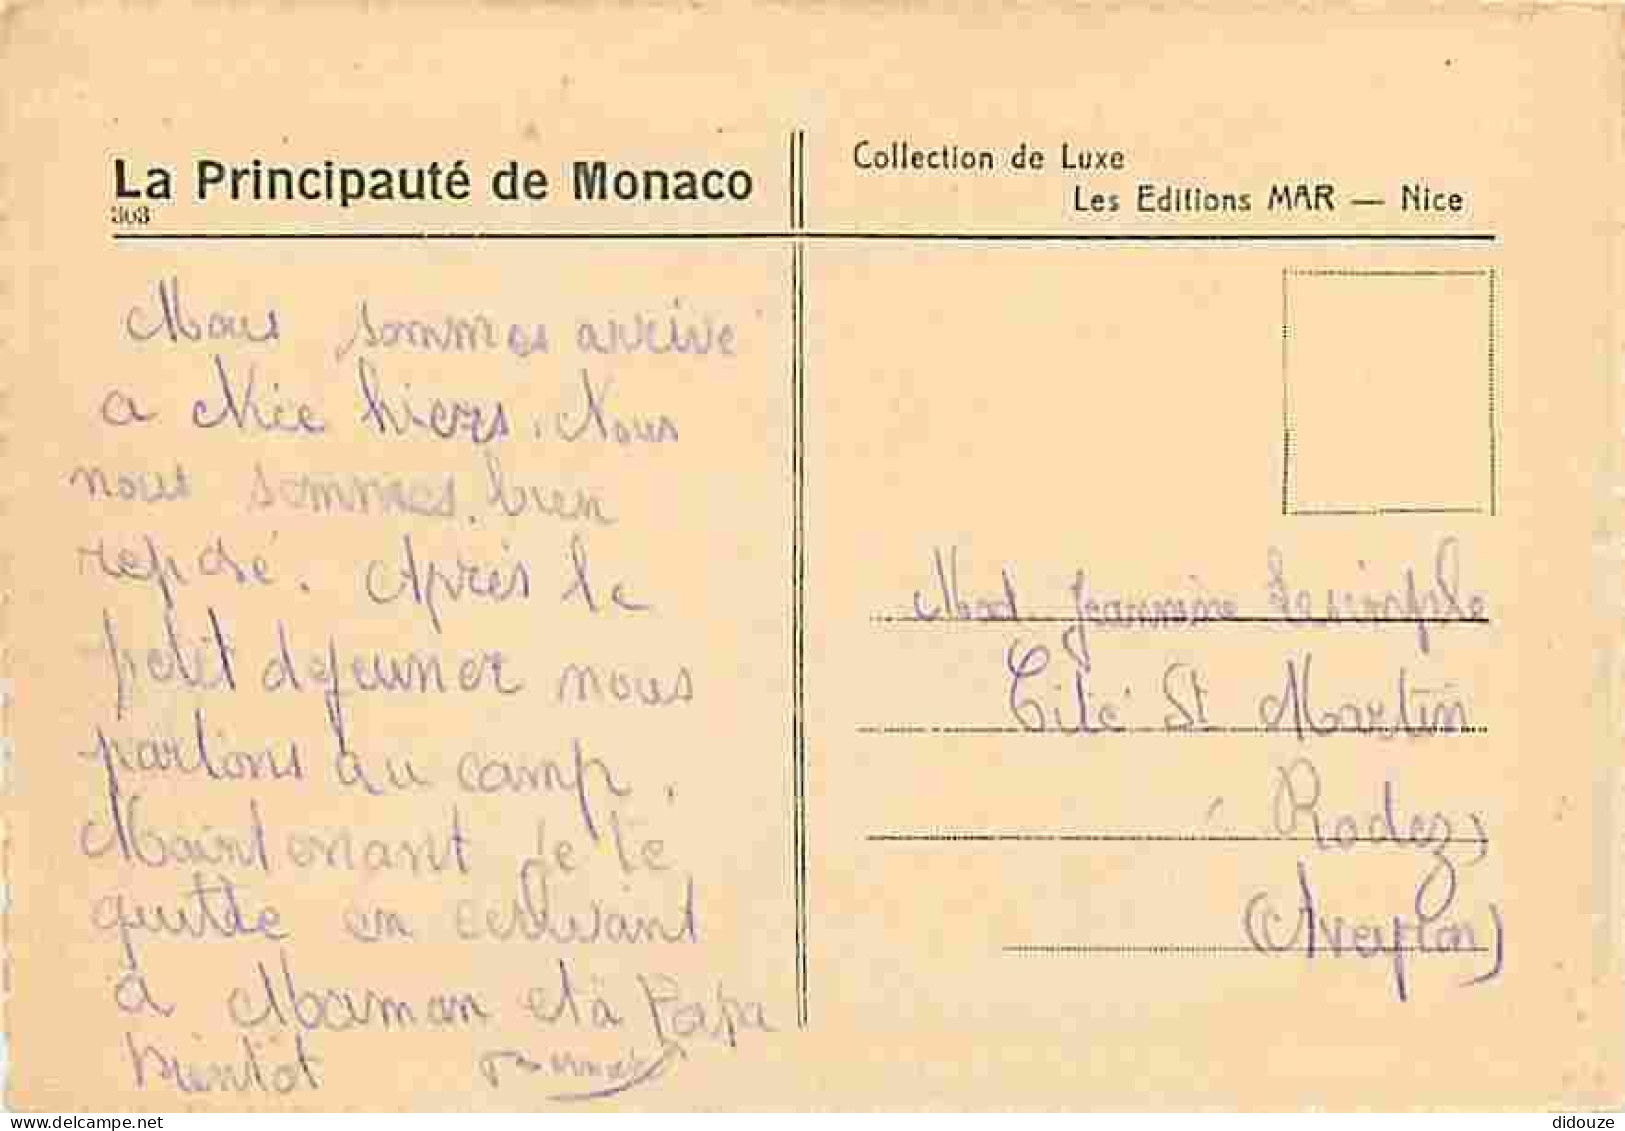 La Principauté de Monaco
303
Collection de Luxe
Les Editions MAR — Nice
Nous sommes arrive
a Nice hiers. Nous
nous sommes bien
reposé. Après le
petit dejeuner nous
partons au camp.
Maintenant je te
quitte en ecrivant
à Maman et à Papa
bientôt
Mad. Jeannine
Cité St Martin
Rodez,
(Aveyron)
didouze